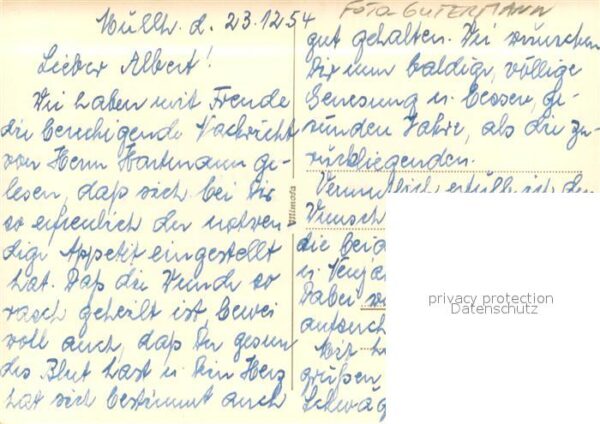 Müllh. d. 23.12.54
Lieber Albert!
Wir haben mit Freude
die beruhigende Nachricht
von Herrn Hartmann ge-
lesen, daß sich bei Dir
so erfreulich der notwen
dige Appetit eingestellt
hat. Daß die Wunde so
rasch geheilt ist, bewei
voll auch, daß Du gesun
des Blut hast u. Dein Herz
hat sich bestimmt auch
Ultimota
FOTO-GUTERMANN
gut gehalten. Wir wünschen
Dir nun baldige, völlige
Genesung u. bessere, ge-
sunden Jahre, als die zu-
rückliegenden.
Wunsch
die beid
u.
Dabei
aufsuch
Mit
grüßen
Schwag
privacy protection
Datenschutz